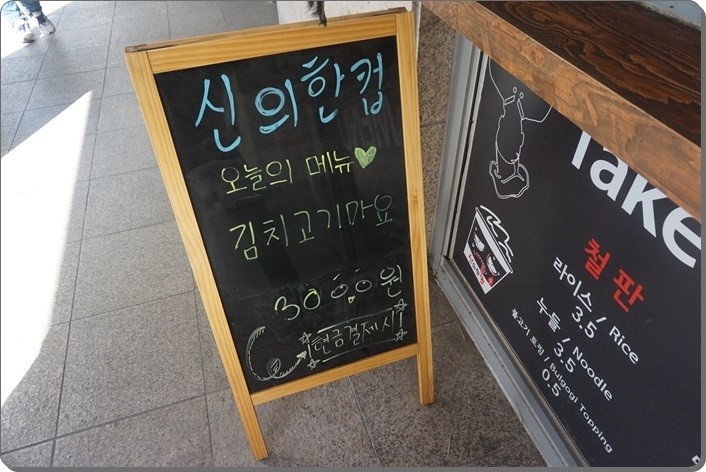 신의한컵
오늘의 메뉴♥
김치고기마요
3000원
현금결제시!
Take
철판
라이스 / Rice
3.5
누들 / Noodle
3.5
불고기 토핑 / Bulgogi Topping
0.5